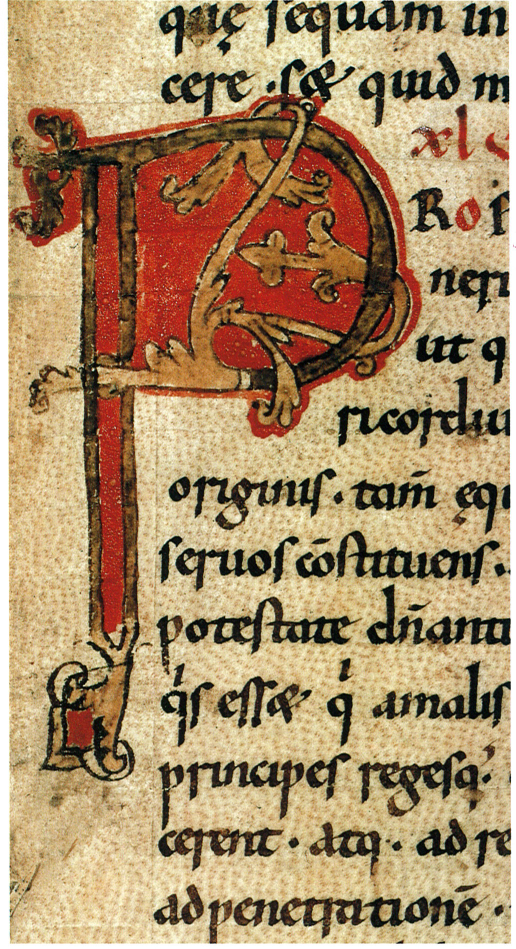 quę sequam in
cere · s& quid m
xl
PRop
neri
ut q
ricordiu
originis · tam̄ equ
seruos cōstituens ·
potestate dn̄anti
qⁱs ess& qⁱ amalis
principes regesq·
cerent · atq · ad re
ad penetrationē ·